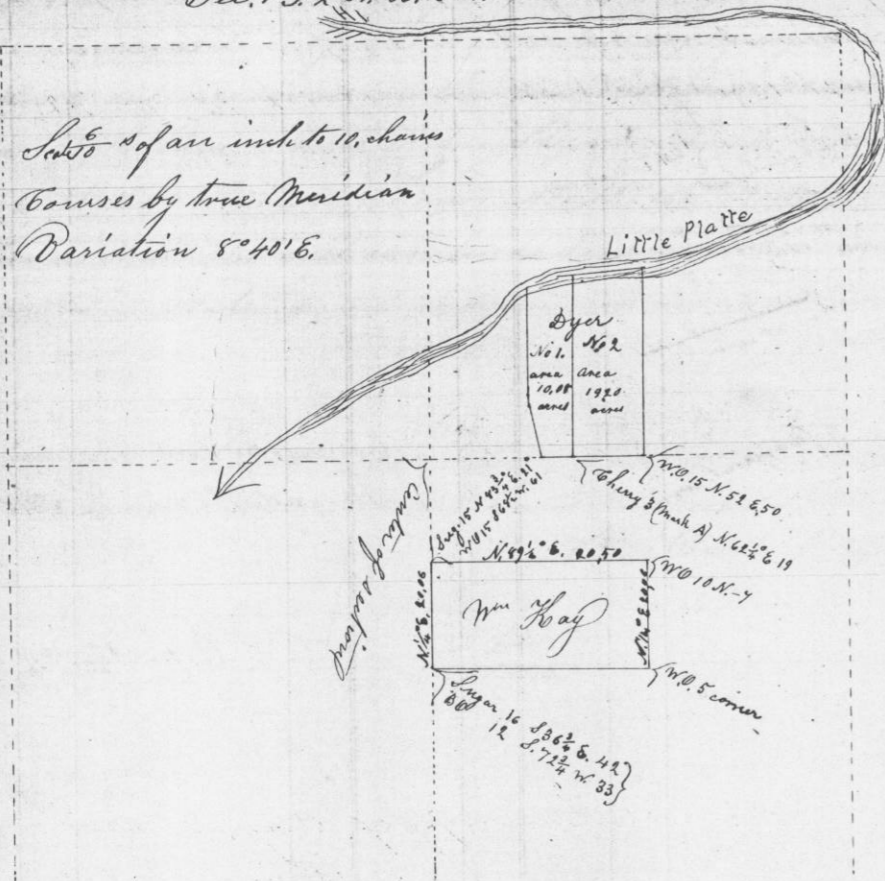 Sec. 13. 2
Scale 6/10 s of an inch to 10, chains
Courses by true Meridian
Variation 8° 40' E.
Little Platte
Dyer
No 1.
area
10,08
acres
No 2
area
19 20
acres
W.O. 15 N. 52 E, 50
Cherry 3 (mark A) N 62¼° E 19
Center of Section
Sug. 15 N 43¾° E. 21
W.O 15 W. 61
N. 89½° E. 20,50
W O 10 N. -7
Wm Kay
N ¼° E.
N ¼° E
W.O. 5 corner
Sugar 16 S 36¾ E. 42
BO 12 S. 72¾ W 33